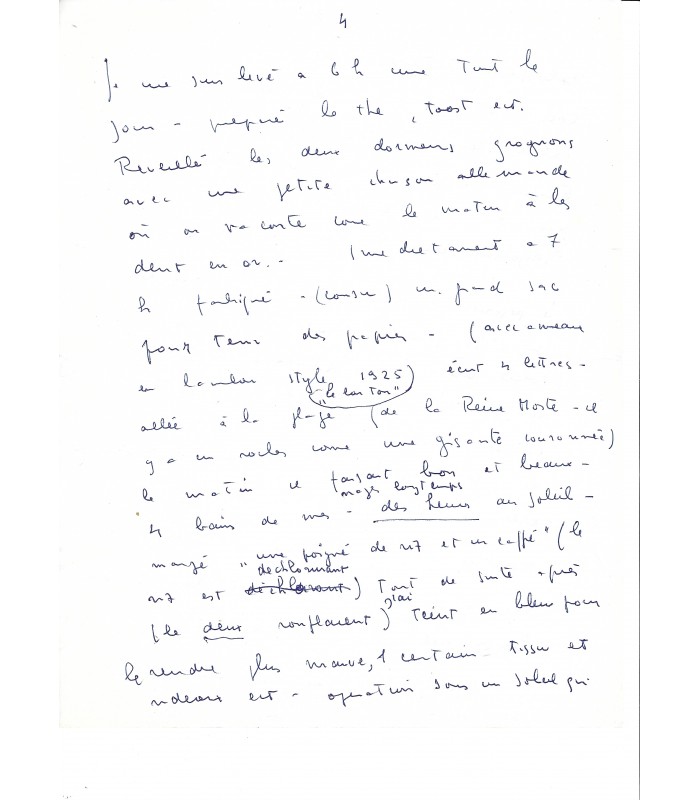 4
Je me suis levé a 6 h une Tout le
jour - preparé le the, toast ect.
Reveillé les deux dormeurs grognons
avec une petite chanson allemande
où on raconte que le matin à les
dent en or. - Imediatament a 7
h fabriqué - (cousu) un grand sac
pour tenir des papier - (avec anneau
en bambou style 1925) écrit 4 lettres -
"le carton"
allée à la plage (de la Reine Morte - il
y a un rocher come une gisante couronnée)
le matin il faisant bon et beaux -
nagé longtemps
4 bain de mer - des heures au soleil -
mangé "une poigné de riz et un caffé" (le
dechlorurant
riz est dechlorant) Tout de suite après
(le deux ronflaient) j'ai teint en bleu pour
le rendre plus mauve, 1 certain tissu et
rideaux ect - operation sous un soleil qui